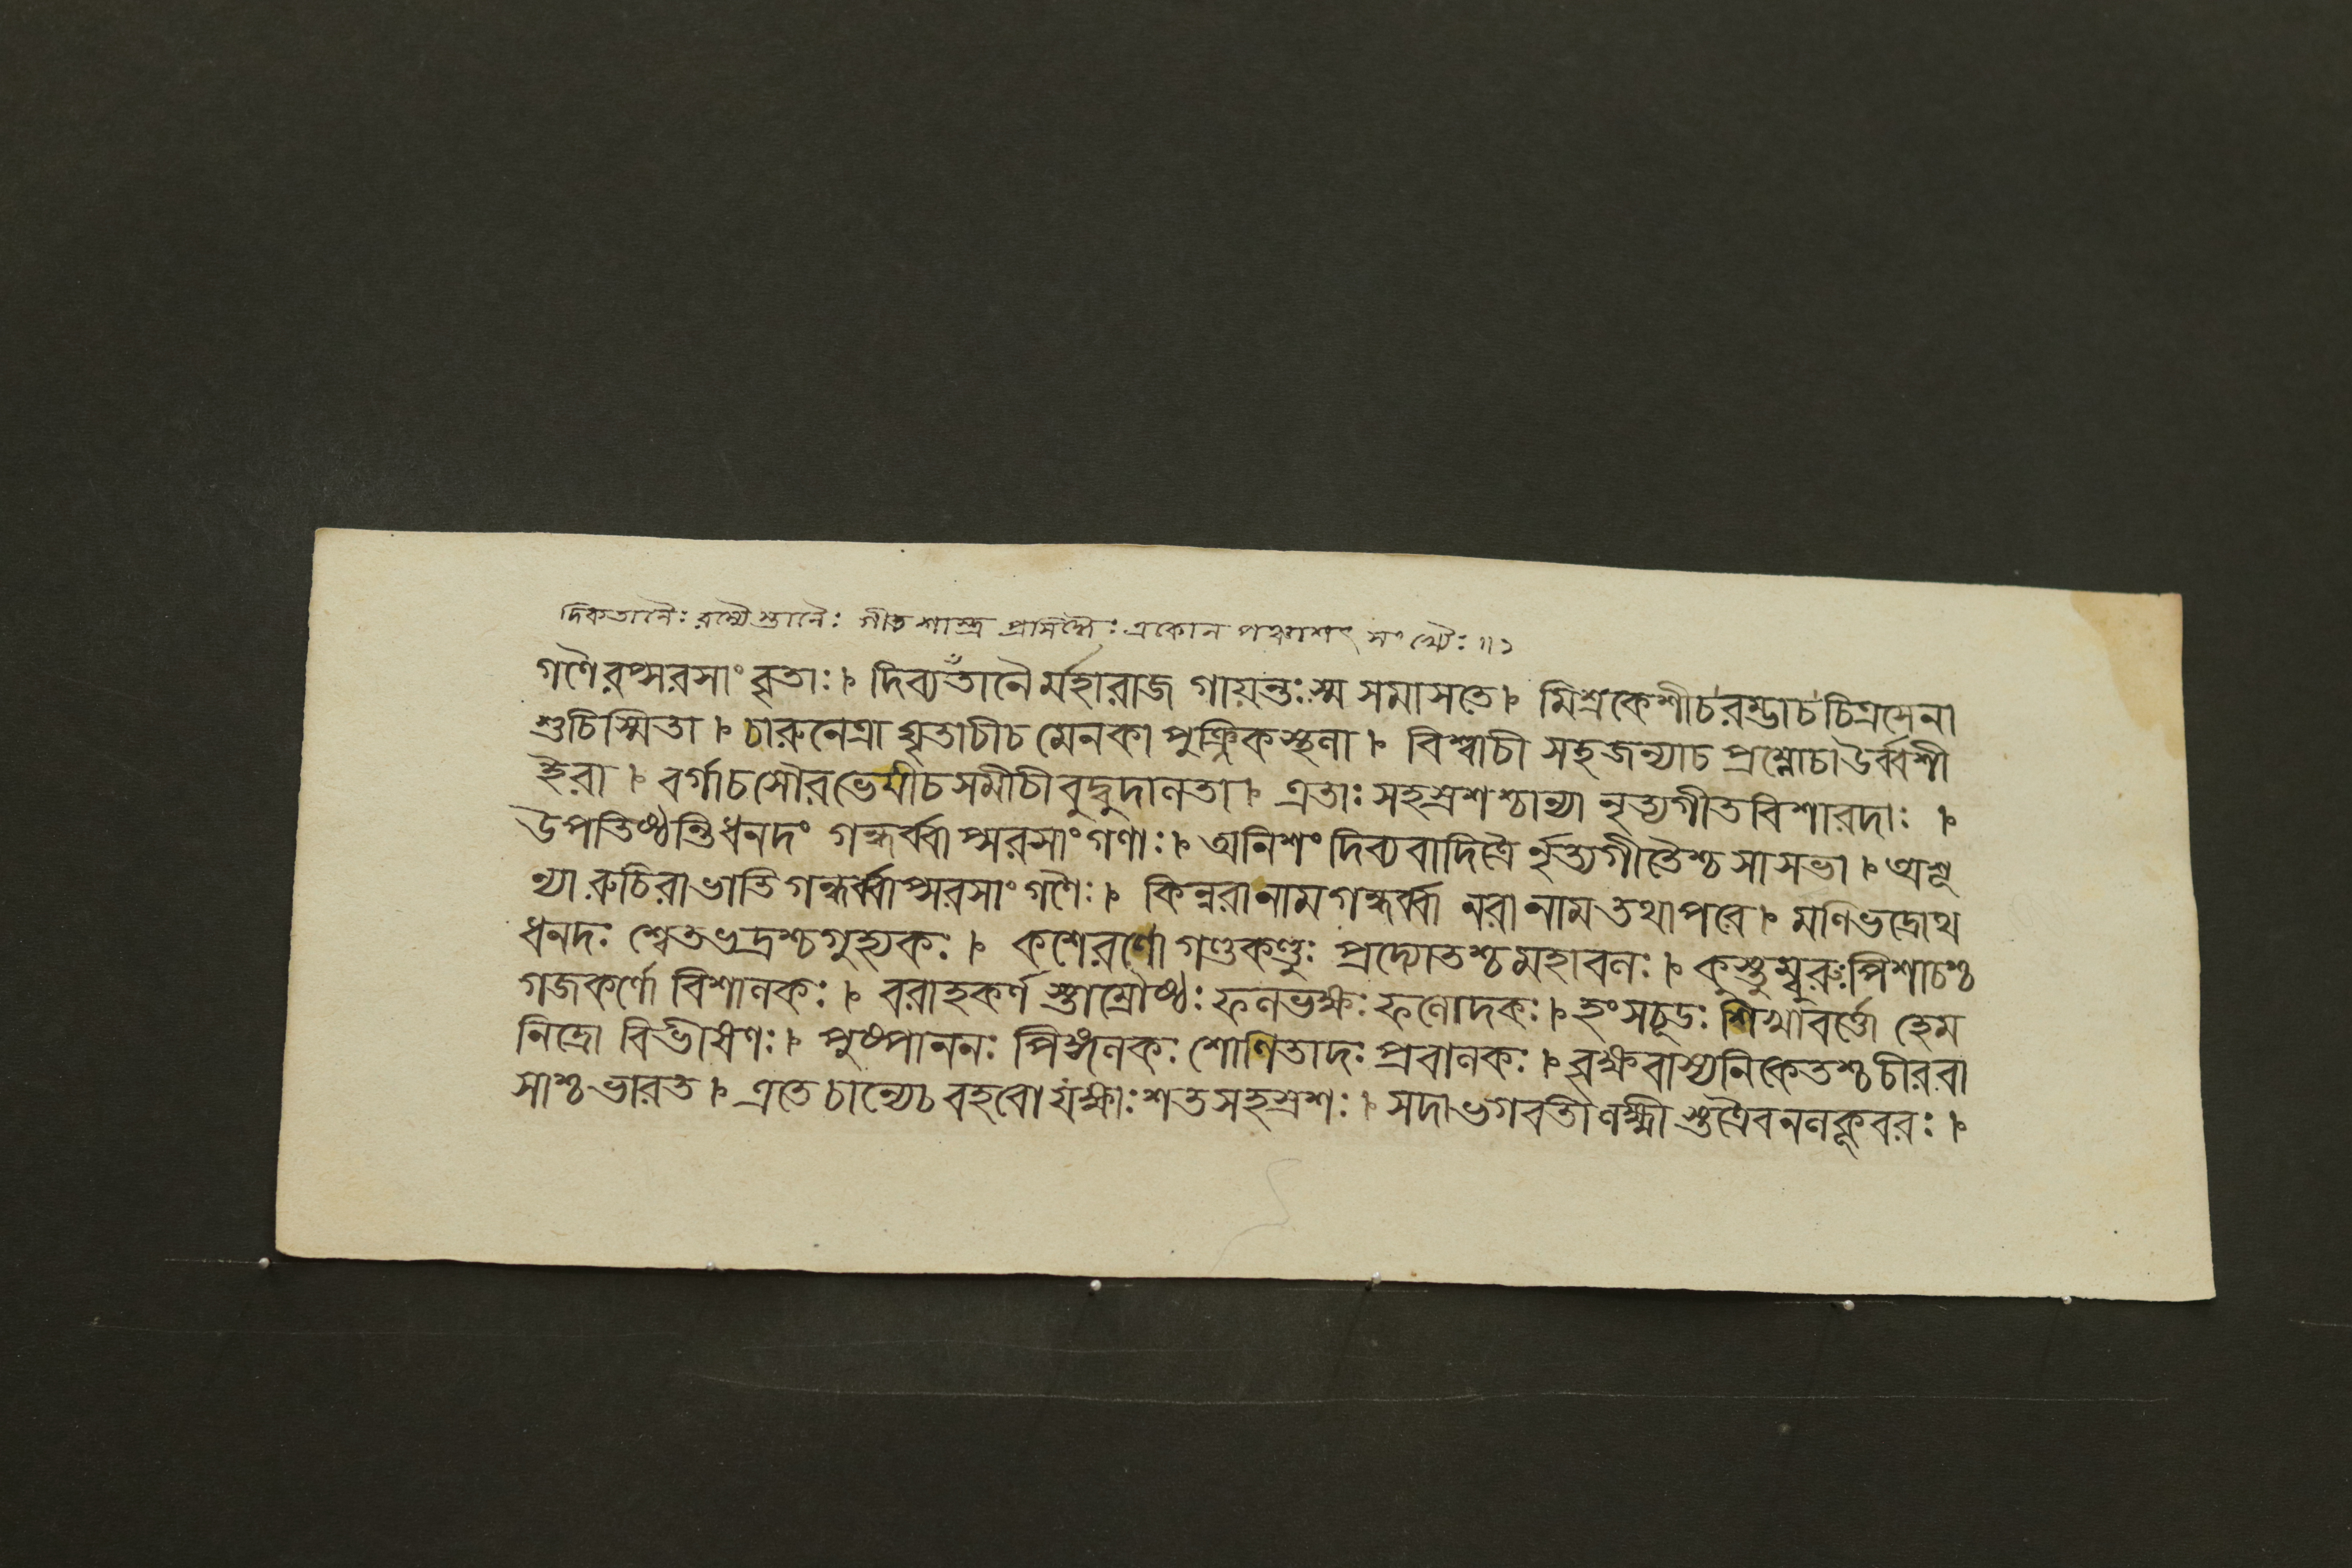 দিকতানৈঃ রম্যৈস্তানৈঃ গীত শাস্ত্র প্রসিদ্ধৈঃ একোন পঞ্চাশৎ সংখ্যৈঃ ॥১
গণৈরপ্সরসাং বৃতাঃ। দিব্যতাঁনৈর্মহারাজ গায়ন্তঃস্ম সমাসতে। মিশ্রকেশীচরম্ভাচ চিত্রসেনা
শুচিস্মিতা। চারুনেত্রা ঘৃতাচীচ মেনকা পুঞ্জিকস্থলা। বিশ্বাচী সহজন্যাচ প্রম্লোচাউর্ব্বশী
ইরা। বর্গাচসৌরভেযীচসমীচীবুদ্বুদালতা। এতাঃ সহস্রশশ্চান্যা নৃত্যগীতবিশারদাঃ ।
উপতিষ্ঠন্তিধনদং গন্ধর্ব্বাপ্সরসাংগণাঃ। অনিশং দিব্যবাদিত্রৈ র্নৃত্যগীতৈশ্চ সাসভা। অশূ
ন্যা রুচিরাভাতি গন্ধর্ব্বাপ্সরসাংগণৈঃ। কিন্নরানামগন্ধর্ব্বা নরানামতথাপরে। মণিভদ্রোথ
ধনদঃ শ্বেতভদ্রশ্চগুহ্যকঃ। কশেরণো গণ্ডকণ্ডুঃ প্রদ্যোতশ্চমহাবলঃ। কুস্তুম্বুরুঃপিশাচশ্চ
গজকর্ণো বিশালকঃ। বরাহকর্ণ স্তাম্রৌষ্ঠঃ ফলভক্ষঃ ফলোদকঃ। হংসচূডঃ শিখাবর্ত্তো হেম
নিত্রো বিভীষণঃ। পুষ্পাননঃ পিঙ্গলকঃ শোণিতাদঃ প্রবালকঃ। বৃক্ষবাস্যনিকেতশ্চচীরবা
সাশ্চভারত। এতে চান্যেচ বহবো যক্ষাঃ শতসহস্রশঃ। সদাভগবতীলক্ষ্মী স্তত্রৈবনলকূবরঃ।